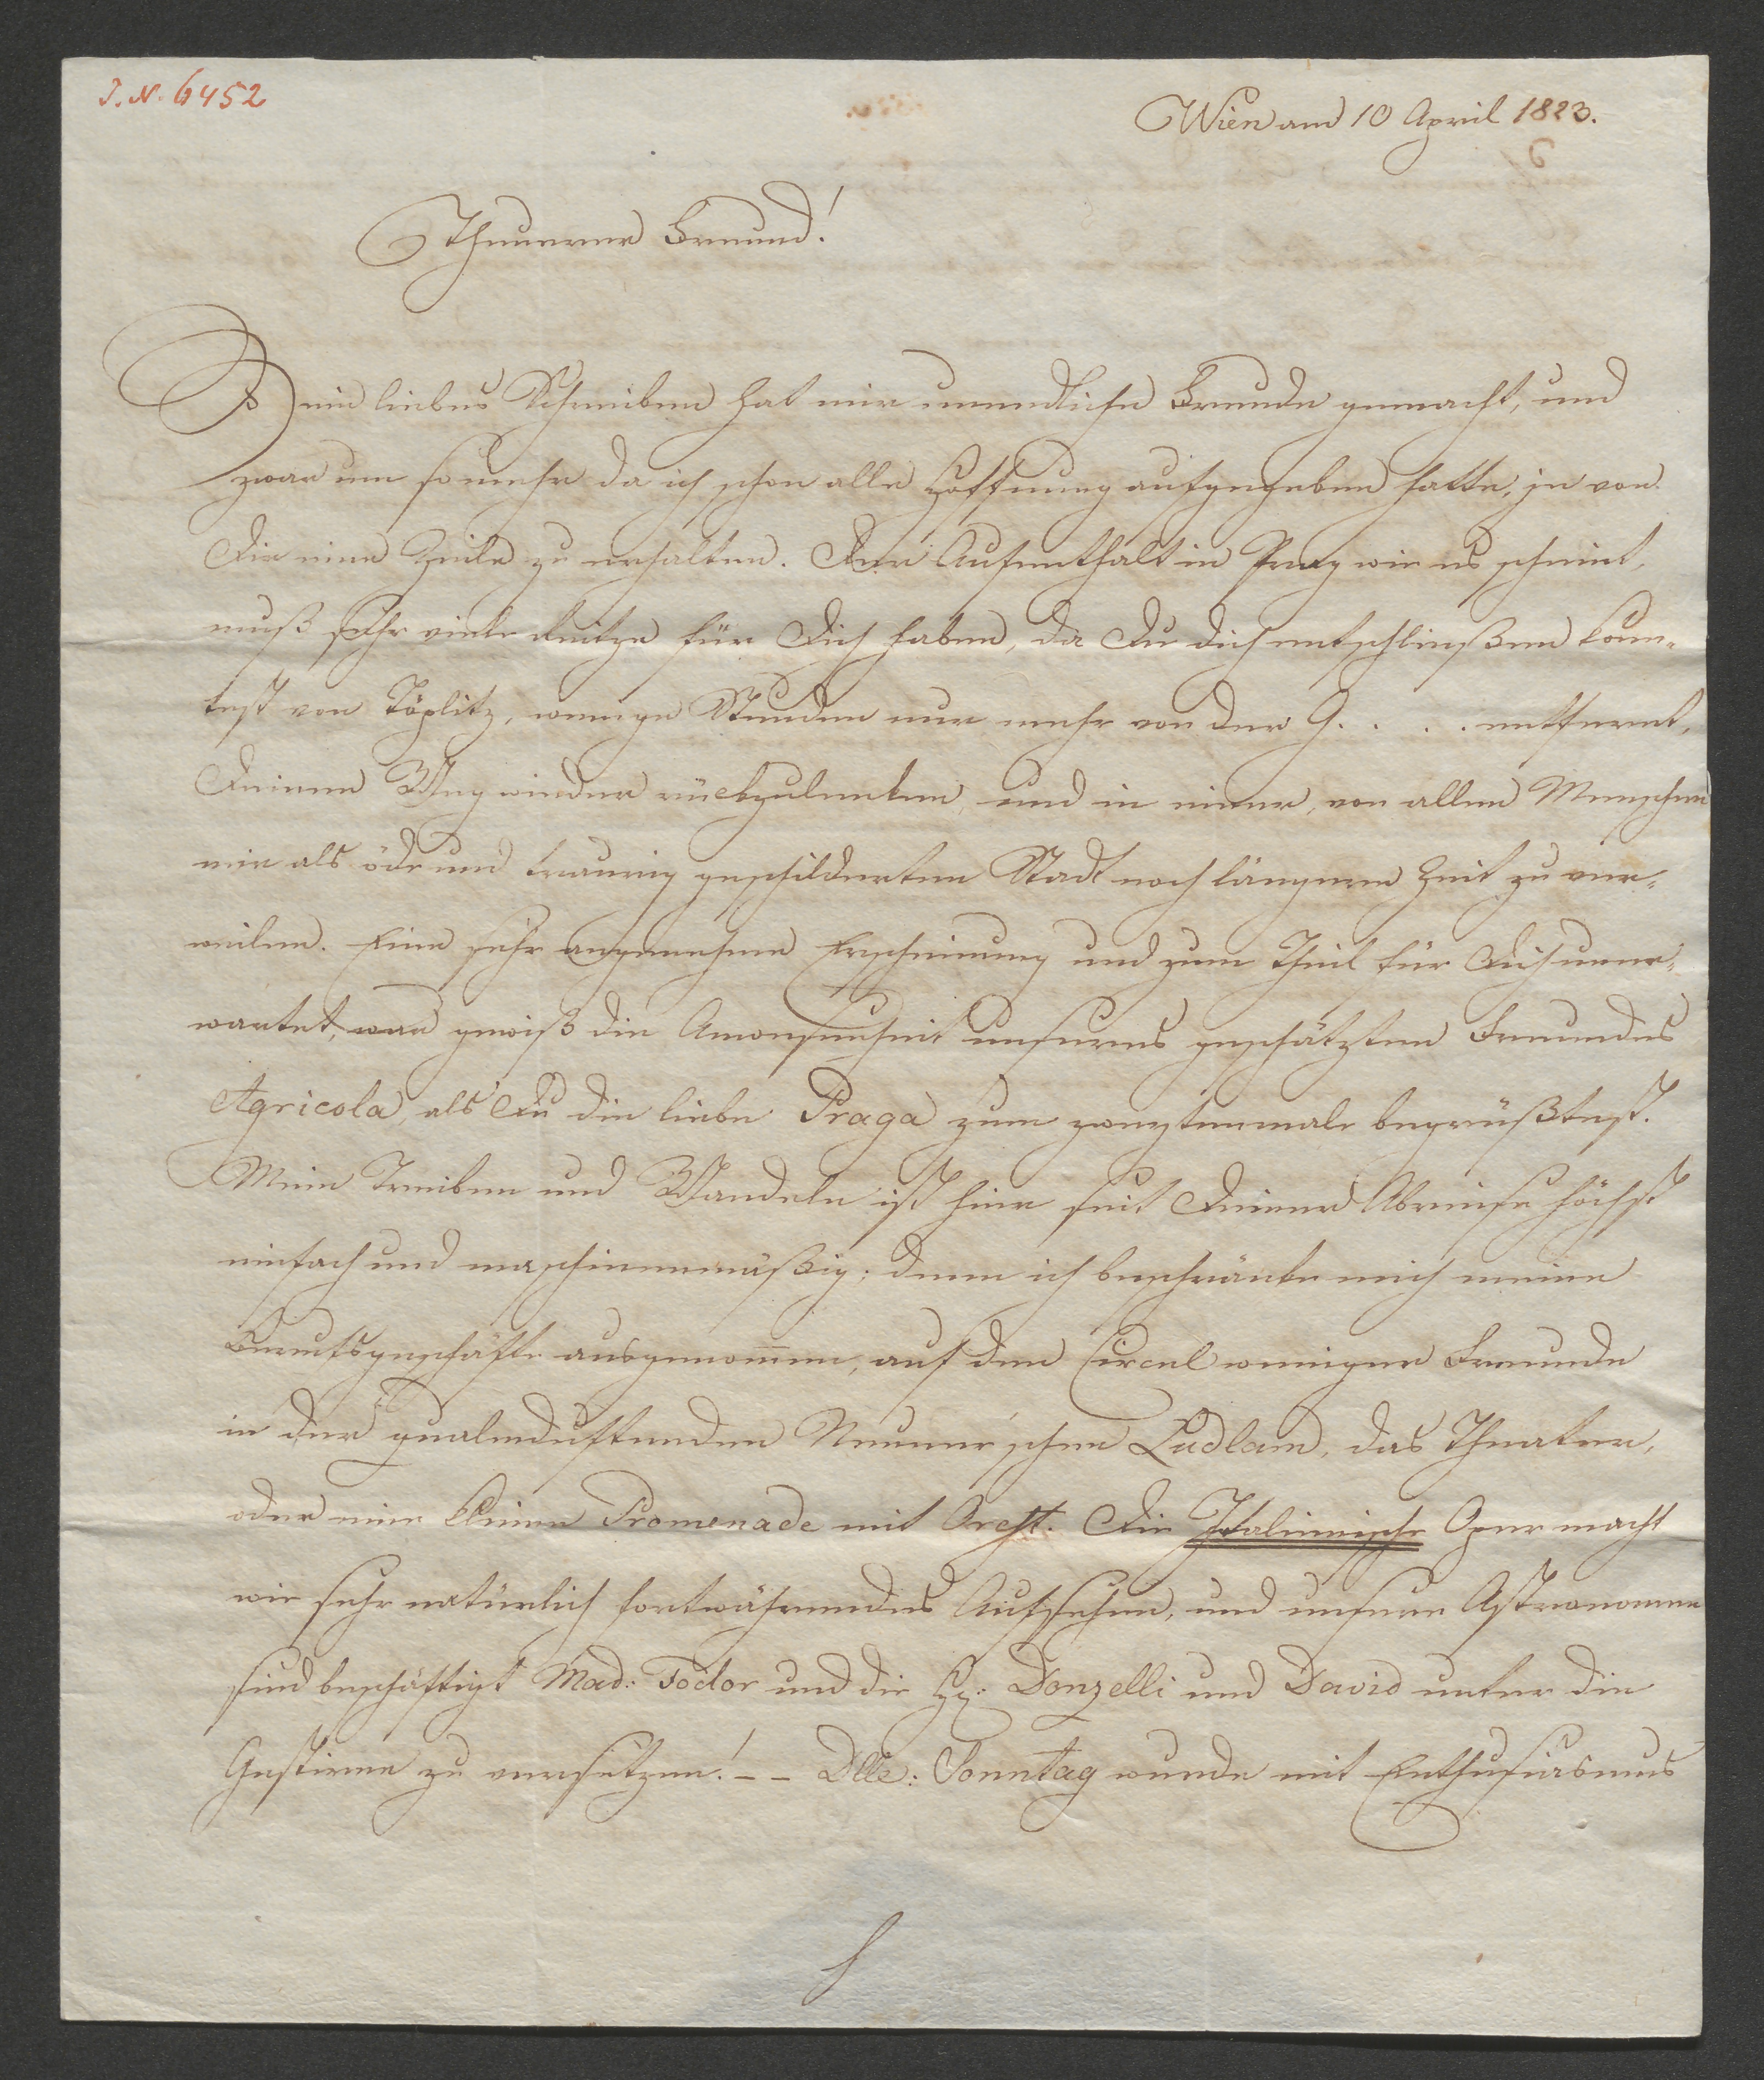 J. N. 6452
Wien am 10 April 1823.
Theuerer Freund!
Dein liebes Schreiben hat mir unendliche Freude gemacht, und
zwar um so mehr da ich schon alle Hoffnung aufgegeben hatte, je von
Dir eine Zeile zu erhalten. Der Aufenthalt in Prag wie es scheint,
muß sehr viele Reitze für Dich haben, da Du dich entschließen konn-
test von Töplitz, wenige Stunden nur mehr von der G. . . . entfernt,
Deinen Weg wieder rückzulenken, und in einer, von allen Menschen
mir als öde und traurig geschilderten Stadt noch längere Zeit zu ver-
weilen. Eine sehr angenehme Erscheinung und zum Theil für Dich uner-
wartet, war gewiß die Anwesenheit unseres geschätzten Freundes
Agricola, als Du die liebe Praga zum zweytenmale begrüßtest.
Mein Treiben und Wandeln ist hier seit Deiner Abreise höchst
einfach und maschinenmäßig; denn ich beschränke mich meine
Berufsgeschäfte ausgenom̅en, auf den Circel weniger Freunde
in der qualmduftenden Neuner'schen Ludlam, das Theater,
oder eine kleine Promenade mit Orest. Die Italienische Oper macht
wie sehr natürlich fortwährendes Aufsehen, und unsere Astronomen
sind beschäftigt Mad: Fodor und die HH: Donzelli und David unter die
Gestirne zu versetzen! – – Dlle: Sonntag wurde mit Enthusiasmus